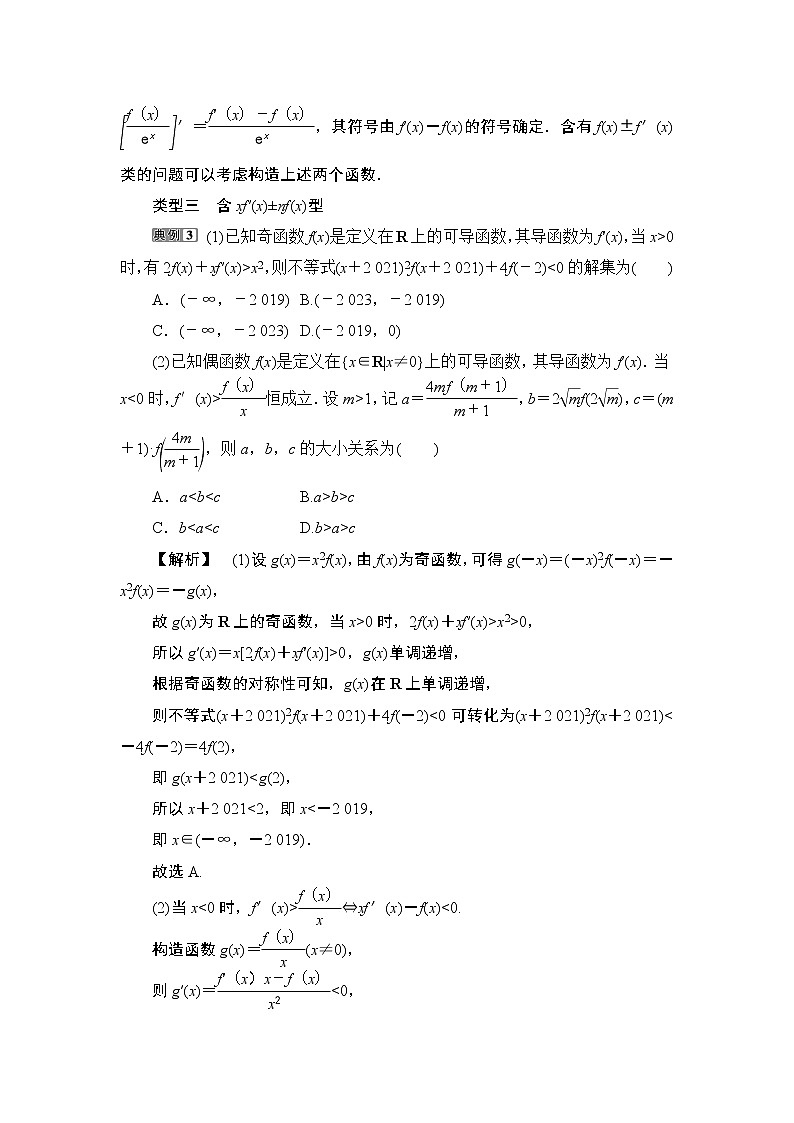 [f（x）/eˣ]′＝f′（x）－f（x）/eˣ，其符号由 f′(x)－f(x)的符号确定．含有 f(x)±f′(x)
类的问题可以考虑构造上述两个函数．
类型三　含 xf′(x)±nf(x)型
典例 3 (1)已知奇函数 f(x)是定义在 R 上的可导函数，其导函数为 f′(x)，当 x>0
时，有 2f(x)＋xf′(x)>x²，则不等式(x＋2 021)²f(x＋2 021)＋4f(－2)<0 的解集为(　　)
A．(－∞，－2 019) B.(－2 023，－2 019)
C．(－∞，－2 023) D.(－2 019，0)
(2)已知偶函数 f(x)是定义在{x∈R|x≠0}上的可导函数，其导函数为 f′(x)．当
x<0 时，f′(x)>f（x）/x恒成立．设 m>1，记 a＝4mf（m＋1）/m＋1，b＝2√m f(2√m)，c＝(m
＋1)·f(4m/m＋1)，则 a，b，c 的大小关系为(　　)
A．a<b<c B.a>b>c
C．b<a<c D.b>a>c
【解析】　(1)设 g(x)＝x²f(x)，由 f(x)为奇函数，可得 g(－x)＝(－x)²f(－x)＝－
x²f(x)＝－g(x)，
故 g(x)为 R 上的奇函数，当 x>0 时，2f(x)＋xf′(x)>x²>0，
所以 g′(x)＝x[2f(x)＋xf′(x)]>0，g(x)单调递增，
根据奇函数的对称性可知，g(x)在 R 上单调递增，
则不等式(x＋2 021)²f(x＋2 021)＋4f(－2)<0 可转化为(x＋2 021)²f(x＋2 021)<
－4f(－2)＝4f(2)，
即 g(x＋2 021)<g(2)，
所以 x＋2 021<2，即 x<－2 019，
即 x∈(－∞，－2 019)．
故选 A.
(2)当 x<0 时，f′(x)>f（x）/x⇔xf′(x)－f(x)<0.
构造函数 g(x)＝f（x）/x(x≠0)，
则 g′(x)＝f′（x）x－f（x）/x²<0，